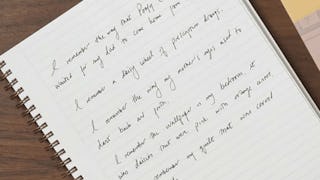 I remember the way that
waited for my dad to come home from
I remember a daily wheel of prescription drugs.
I remember the way my mother's eyes used to
dart back and forth.
I remember the wallpaper in my bedroom it
was daisies that were pink with orange
remember my quilt that was covered